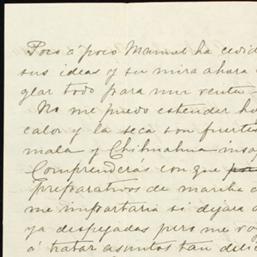 Poco á poco Manuel ha cedid
sus ideas y su mira ahora
glar todo para mir venta
No me puedo estender ho
calor y la seca son fuertes
mala y Chihuahua insop
Comprenderas con que
preparativos de marcha
me importaria si dejara
ya despejadas pero me vo
á tratar asuntos tan delic